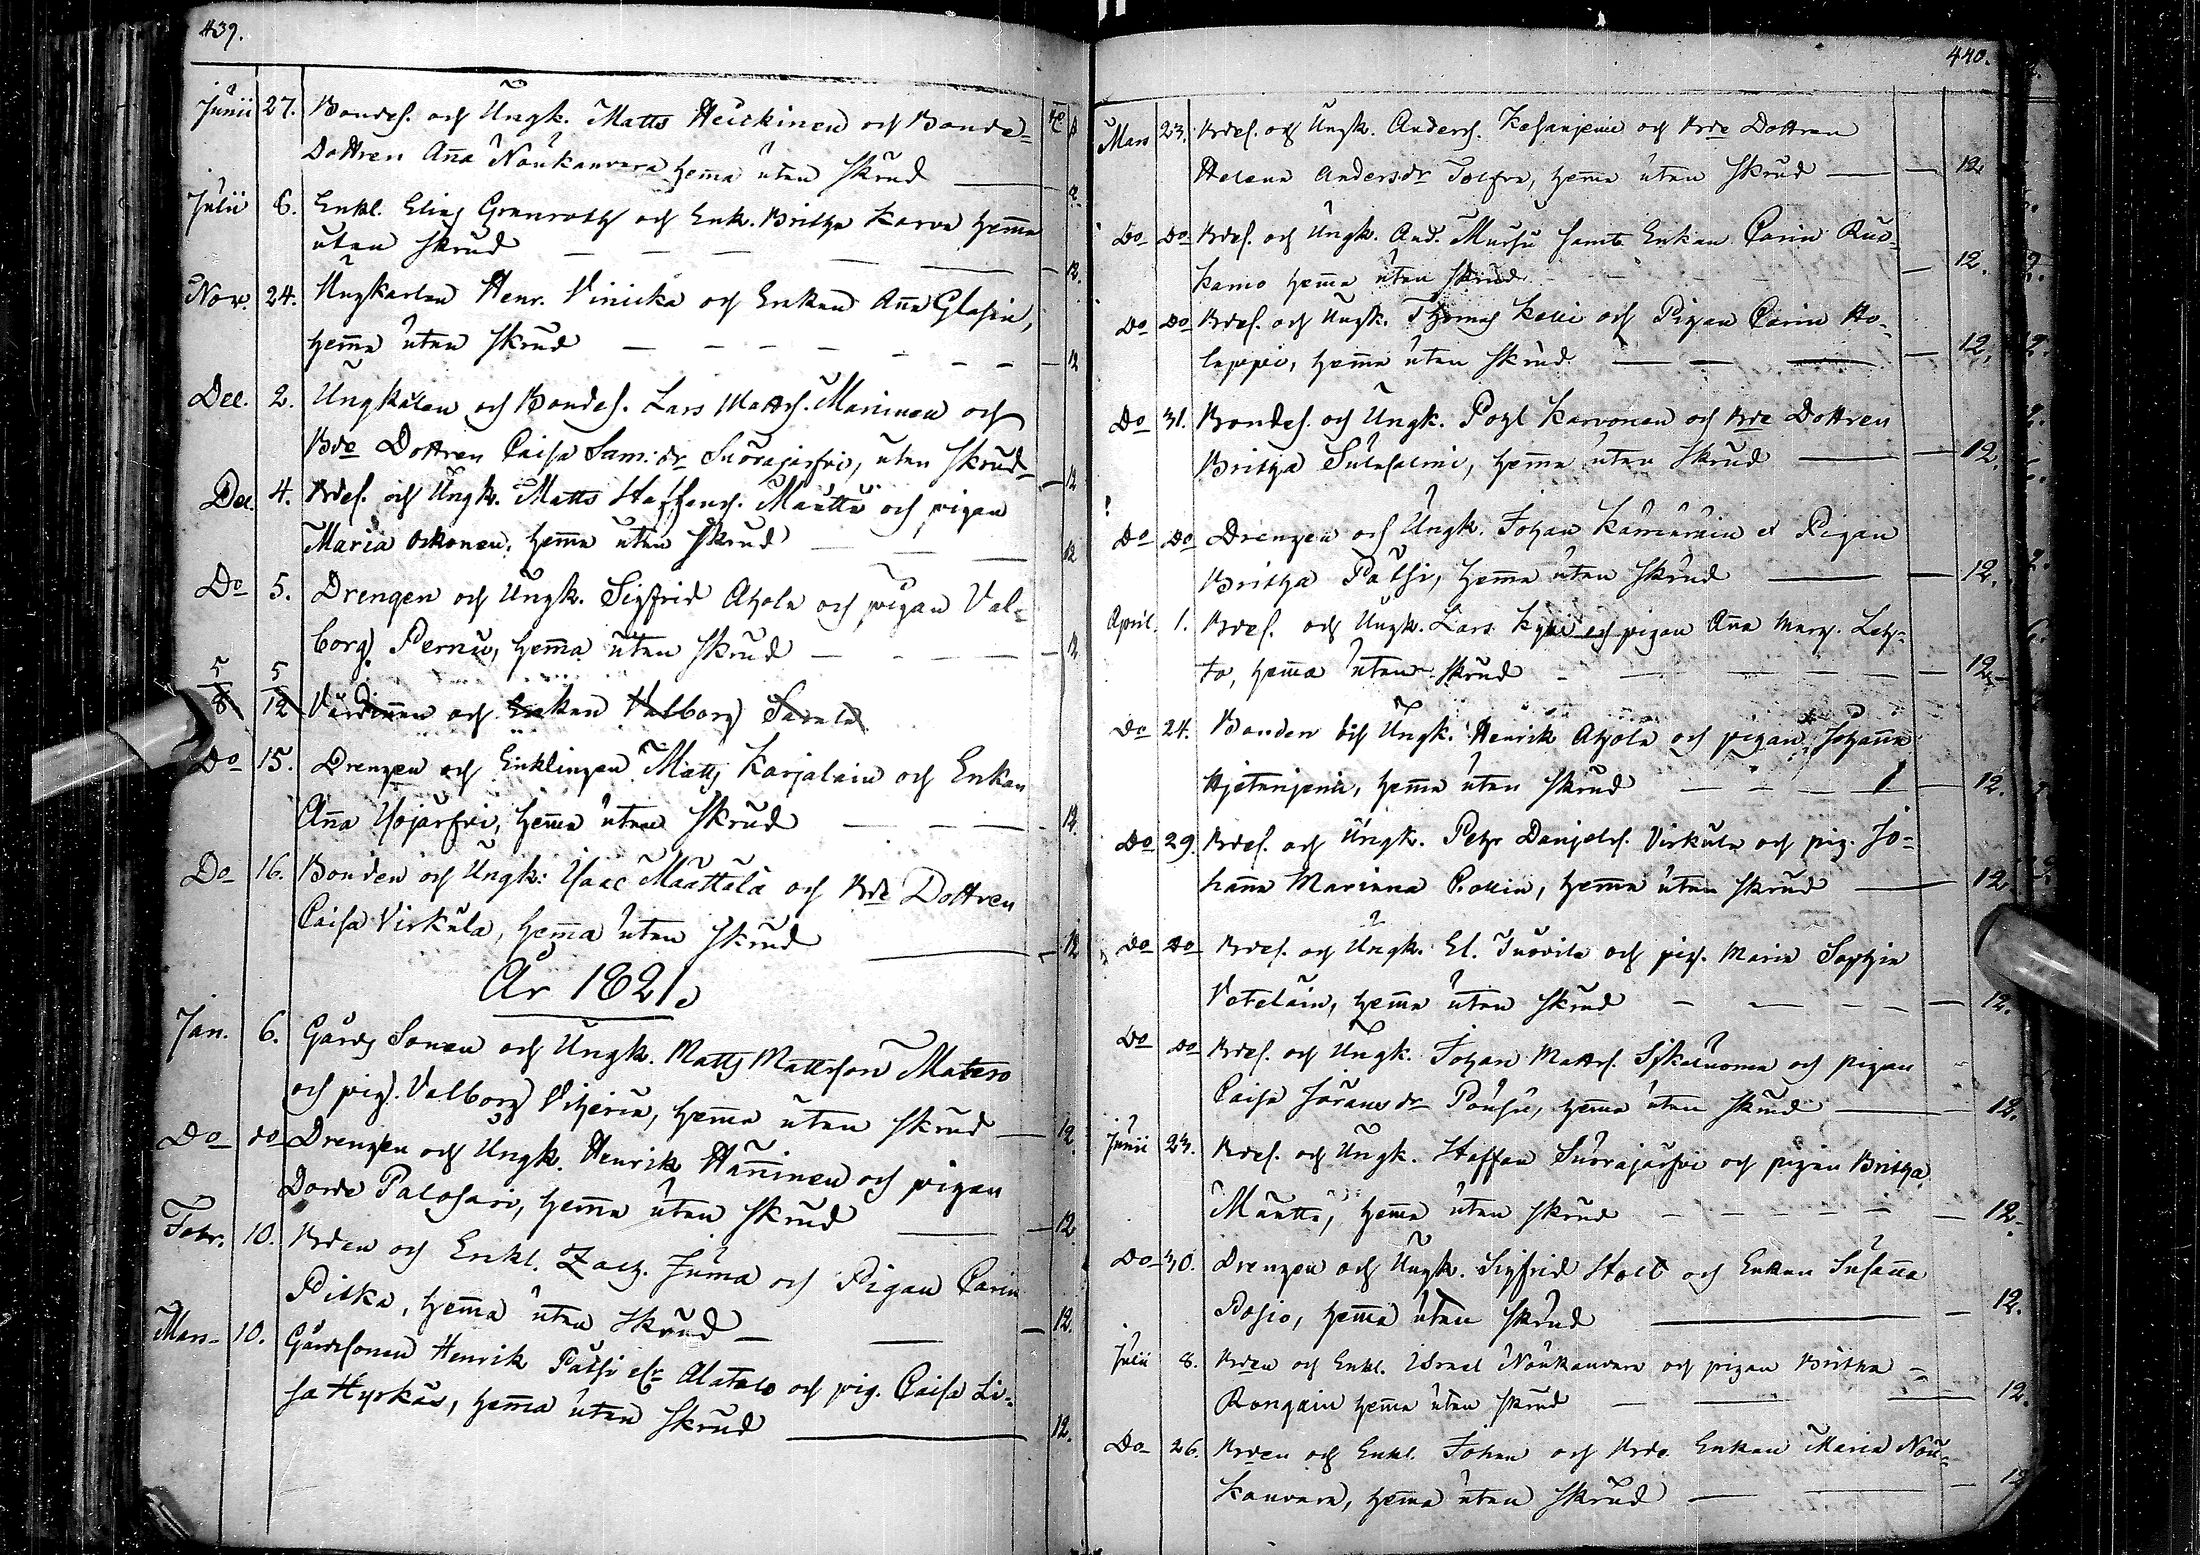 439.
Junii 27. Bondes. och Ungk. Matts Heickinen och Bonde-
Dottren Aña Noukanvara hem̃a utan skrud — 12.
Julii 6. Enkl. Elias Granroth och Enk. Britha Karva hem̃a
utan skrud — 12.
Nov. 24. Ungkarlen Henr. Vinicka och Enkan Aña Glasin,
hem̃a utan skrud — 12
Dec. 2. Ungkalen och Bondes. Lars Matts. Maninen och
Bde Dottren Caisa Sam: dr Suorajärfvi, utan skrud — 12
Dec. 4. Bdes. och Ungk. Matts Staffans. Määttä och pigan
Maria Ockonen, hem̃a utan skrud — 12
Do 5. Drengen och Ungk. Sigfrid Ahola och pigan Val-
borg Pernu, hem̃a utan skrud — 12
5 5
8 12 Värdinnen och Enkan Valborg Savela
Do 15. Drengen och Enklingen Matts Karjalain och Enkan
Aña Isojärfvi, hem̃a utan skrud — 12.
Do 16. Bonden och Ungk: Isaac Määttälä och Bde Dottren
Caisa Virkula, hem̃a utan skrud — 12
År 1821.
Jan. 6. Gårds Sonen och Ungk. Matts Mattsson Matero
och pig. Valborg Viheriä, hem̃a utan skrud — 12.
Do do Drengen och Ungk. Henrik Häñinen och pigan
Dorde Palosari, hem̃a utan skrud — 12.
Febr. 10. Bden och Enkl. Zach. Juma och Pigan Carin
Piska, hem̃a utan skrud — 12.
Mars 10. Gårdssonen Henrik Pätsi elr Alatalo och pig. Caisa Li-
sa Hyrkäs, hem̃a utan skrud — 12.
440.
Mars 23. Bdes. och Ungk. Anders. Kesänjemi och Bde Dottren
Helena Andersdr Tolfva, hem̃a utan skrud — 12.
Do Do Bdes. och Ungk. And. Mursu samt Enkan Carin Ruo-
kamo hem̃a utan skrud — 12.
Do Do Bdes. och Ungk. Thomas Kelli och Pigan Carin Ho-
lappi, hem̃a utan skrud — 12.
Do 31. Bondes. och Ungk. Pohl Karvonen och Bde Dottren
Britha Sulasalmi, hem̃a utan skrud — 12.
Do Do Drengen och Ungk. Johan Kämäräin et Pigan
Britha Pätsi, hem̃a utan skrud — 12.
April. 1. Bdes. och Ungk. Lars Kyni och pigan Aña Marg. Leh-
to, hem̃a utan skrud — 12.
Do 24. Bonden och Ungk. Henrik Ahola och pigan Johaña
Hjetanjemi, hem̃a utan skrud — 12.
Do 29. Bdes. och Ungk. Pehr Daniels. Virkula och pig. Jo-
haña Mariana Pollin, hem̃a utan skrud — 12
Do Do Bdes. och Ungk. El. Juovila och pig. Maria Sophia
Vetelain, hem̃a utan skrud — 12.
Do Do Bdes. och Ungk. Johan Matts. Sykäluoma och pigan
Caisa Jöransdr Pousu, hem̃a utan skrud — 12.
Junii 23. Bdes. och Ungk. Staffan Suorajärfvi och pigan Britha
Määttä, hem̃a utan skrud — 12.
Do 30. Drengen och Ungk. Sigfrid Stolt och Enkan Susaña
Posio, hem̃a utan skrud — 12.
Julii 8. Bden och Enkl. Israel Noukanvara och pigan Britha
Rongain hem̃a utan skrud — 12.
Do 26. Bden och Enkl. Johan och Bde Enkan Maria Nou-
kanvara, hem̃a utan skrud — 12